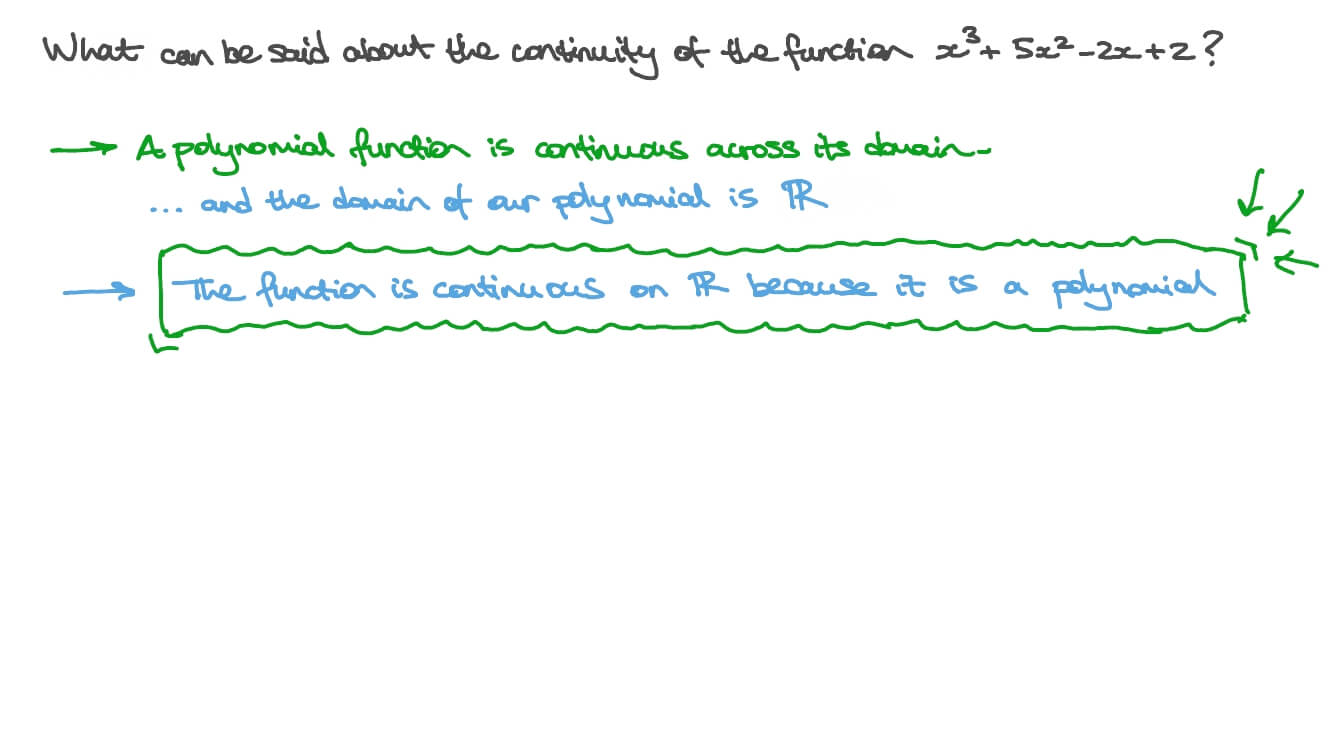 What can be said about the continuity of the function x³ + 5x² - 2x + 2?
→ A polynomial function is continuous across its domain -
... and the domain of our polynomial is ℝ
→ The function is continuous on ℝ because it is a polynomial